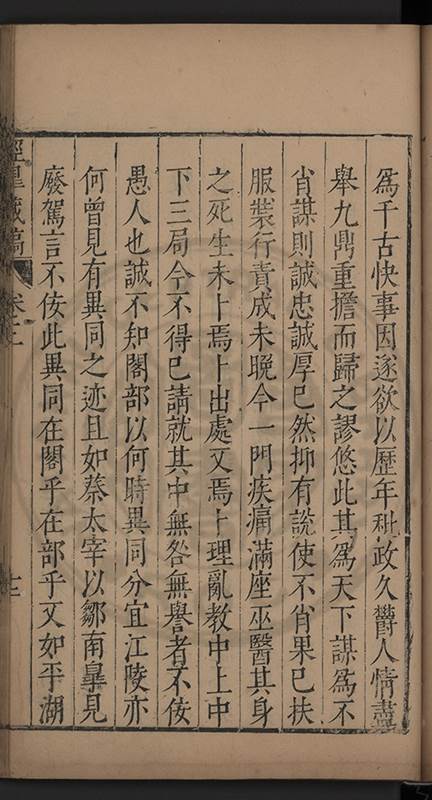 爲千古快事因遂欲以歷年秕政久鬱人情盡
舉九鼎重擔而歸之謬悠此其爲天下謀爲不
肖謀則誠忠誠厚已然抑有說使不肖果已扶
服裝行責成未晚今一門疾痛滿座巫醫其身
之死生未卜焉卜出處又焉卜理亂教中上中
下三局今不得已請就其中無咎無譽者不佞
愚人也誠不知閣部以何時異同分宜江陵亦
何曾見有異同之迹且如蔡太宰以鄒南臯見
廢駕言不佞此異同在閣乎在部乎又如平湖
經臯藏稿 卷之二
十二